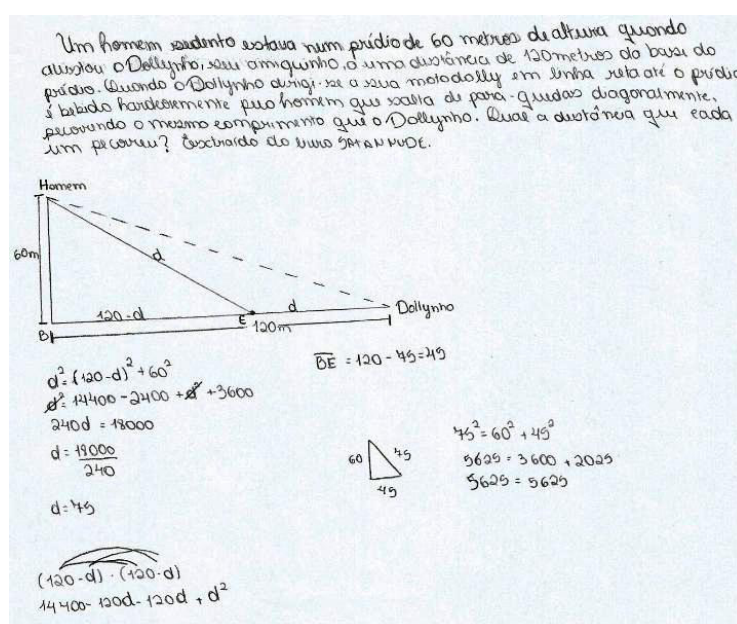 Um homem sedento estava num prídio de 60 metros de altura quando
avistou o Dollynho, seu amiguinho, a uma distância de 120 metros da base do
prédio. Quando o Dollynho dirigi-se a sua motodolly em linha reta até o prédio
é bebido hardcoremente pelo homem que salta de para-quedas diagonalmente,
pecorrendo o mesmo comprimento que o Dollynho. Qual a distância que cada
um pecorreu? Exctraído do livro SATANNUDE.
Homem
60m
d
120-d
E
d
Dollynho
B
120m
d² = (120-d)² + 60²
d² = 14400 - 2400 + d² + 3600
240d = 18000
d = 18000
240
d = 75
BE = 120 - 75 = 45
60
75
45
75² = 60² + 45²
5625 = 3600 + 2025
5625 = 5625
(120-d) · (120-d)
14400 - 120d - 120d + d²